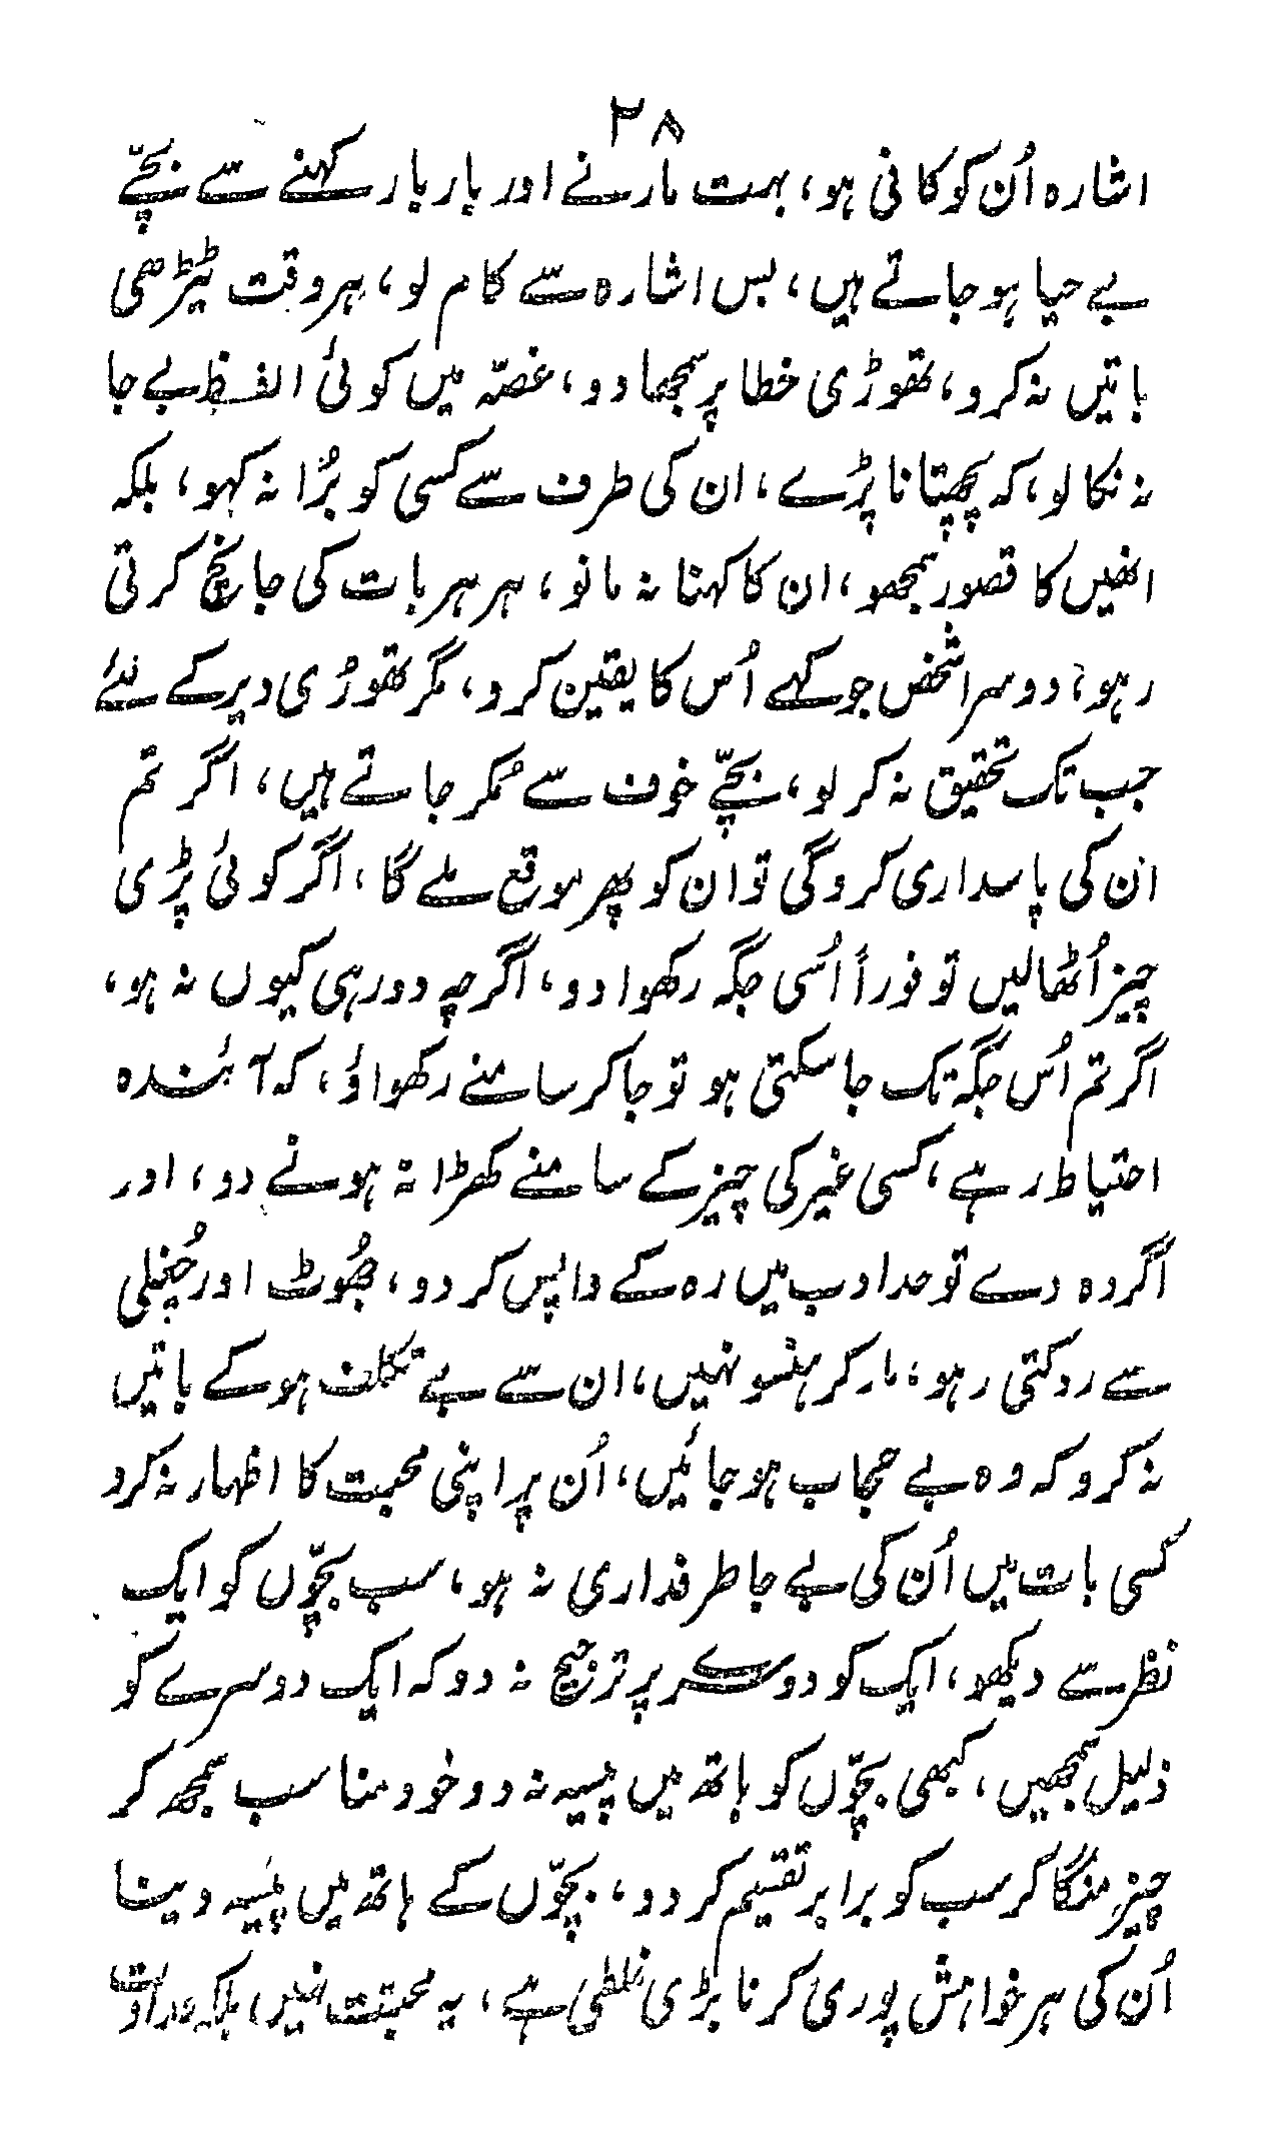 ۲۸
اشارہ اُن کو کافی ہو، بہت مارنے اور بار بار کہنے سے بچّے
بے حیا ہو جاتے ہیں، بس اشارہ سے کام لو، ہر وقت ٹیڑھی
باتیں نہ کرو، تھوڑی خطا پر سمجھا دو، غصّہ میں کوئی الفظ بے جا
نہ نکالو، کہ پچھتانا پڑے، ان کی طرف سے کسی کو بُرا نہ کہو، بلکہ
انھیں کا قصور سمجھو، ان کا کہنا نہ مانو، ہر ہر بات کی جانچ کرتی
رہو، دوسرا شخص جو کہے اُس کا یقین کرو، مگر تھوڑی دیر کے لئے
جب تک تحقیق نہ کر لو، بچّے خوف سے مُکر جاتے ہیں، اگر تم
ان کی پاسداری کروگی تو ان کو پھر موقع ملے گا، اگر کوئی پڑی
چیز اُٹھالیں تو فوراً اُسی جگہ رکھوا دو، اگرچہ دور ہی کیوں نہ ہو،
اگر تم اُس جگہ تک جا سکتی ہو تو جا کر سامنے رکھواؤ، کہ آئندہ
احتیاط رہے، کسی غیر کی چیز کے سامنے کھڑا نہ ہونے دو، اور
اگر وہ دے تو حد ادب میں رہ کے واپس کر دو، جھُوٹ اور چُغلی
سے روکتی رہو، مار کر ہنسو نہیں، ان سے بے تکلف ہو کے باتیں
نہ کرو کہ وہ بے حجاب ہو جائیں، اُن پر اپنی محبت کا اظہار نہ کرو
کسی بات میں اُن کی بے جا طرفداری نہ ہو، سب بچّوں کو ایک
نظر سے دیکھو، ایک کو دوسرے پر ترجیح نہ دو کہ ایک دوسرے کو
ذلیل سمجھیں، کبھی بچّوں کو ہاتھ میں پیسہ نہ دو خود مناسب سمجھ کر
چیز منگا کر سب کو برابر تقسیم کر دو، بچّوں کے ہاتھ میں پیسہ دینا
اُن کی ہر خواہش پوری کرنا بڑی غلطی ہے، یہ محبّت نہیں، بلکہ عداوت